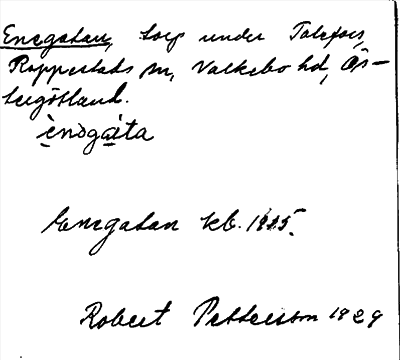 Enegatan, torp under Tolefors,
Rappestads sn, Valkebo hd, Ös-
tergötland.
ènɔgàta
Enegatan kb. 1885.
Robert Pettersson 1929